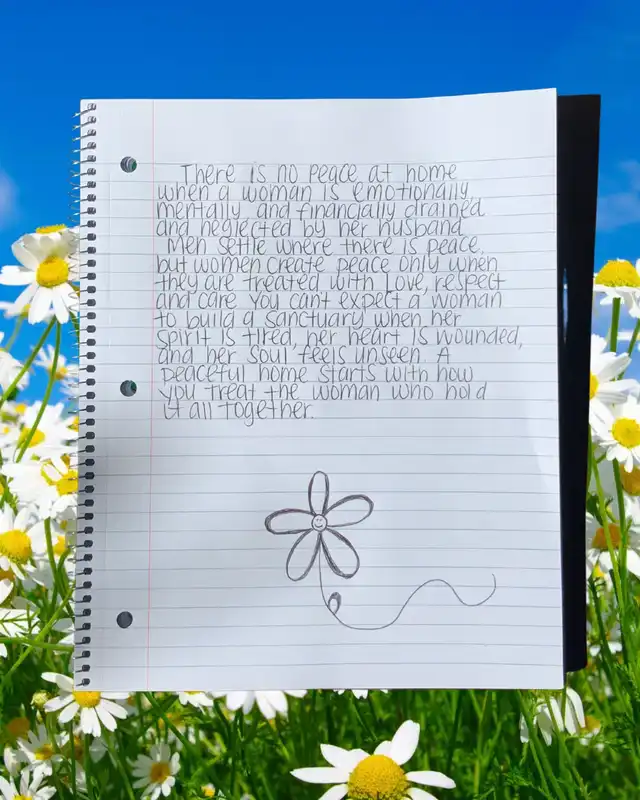 There is no peace at home
when a woman is emotionally
mentally and financially drained
and neglected by her husband
Men settle where there is peace,
but women create peace only when
they are treated with love, respect
and care you can't expect a woman
to build a sanctuary when her
spirit is tired, her heart is wounded,
and her soul feels unseen. A
peaceful home starts with how
you treat the woman who hold
it all together.